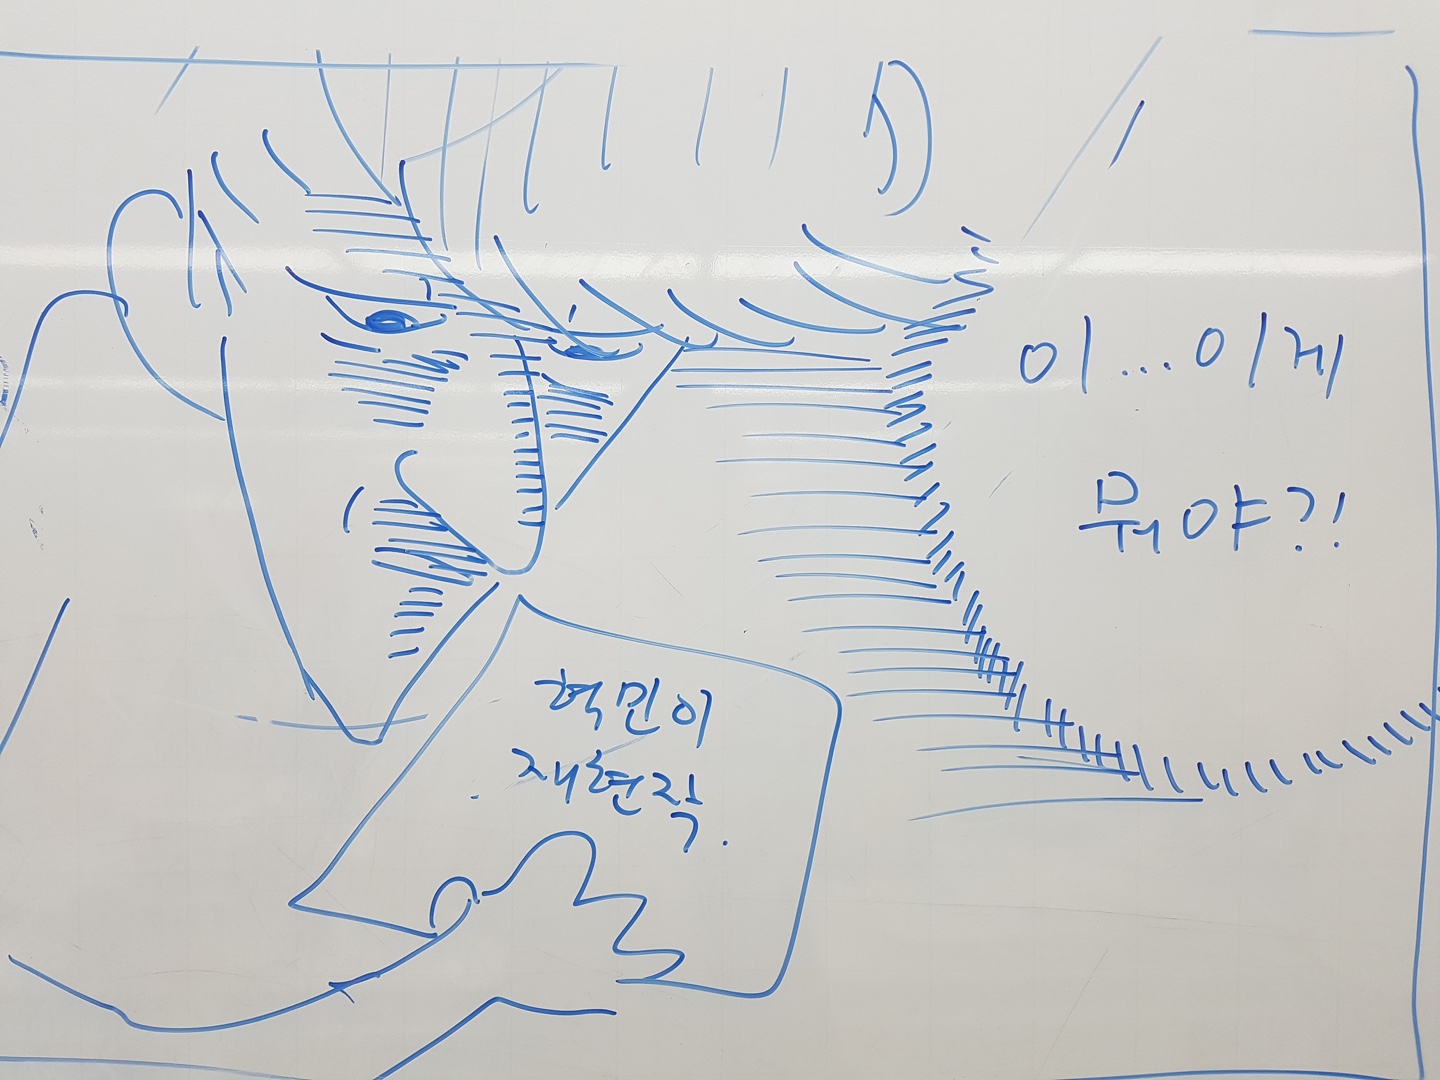 이...이게
뭐야?!
혁민이
재현작.